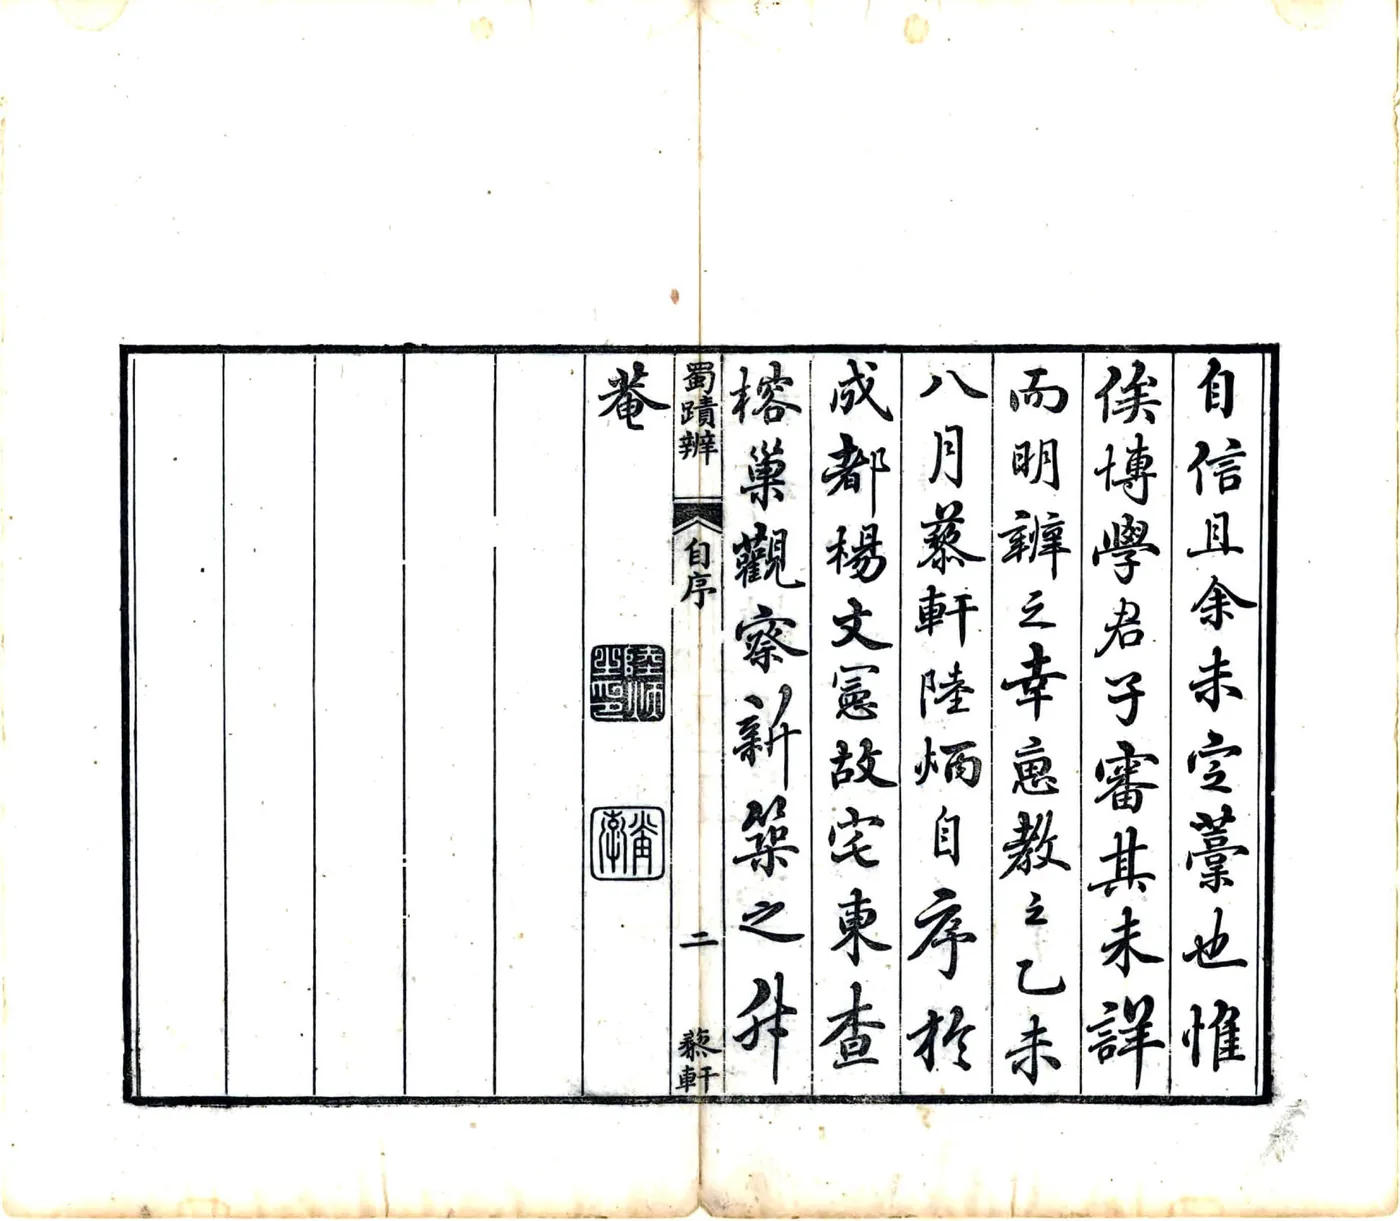 自信且余未定藁也惟
俟博學君子審其未詳
而明辨之幸惠教之乙未
八月藜軒陸炳自序於
成都楊文憲故宅東查
榕巢觀察新築之升
蜀蹟辨
自序
二
藜軒
菴